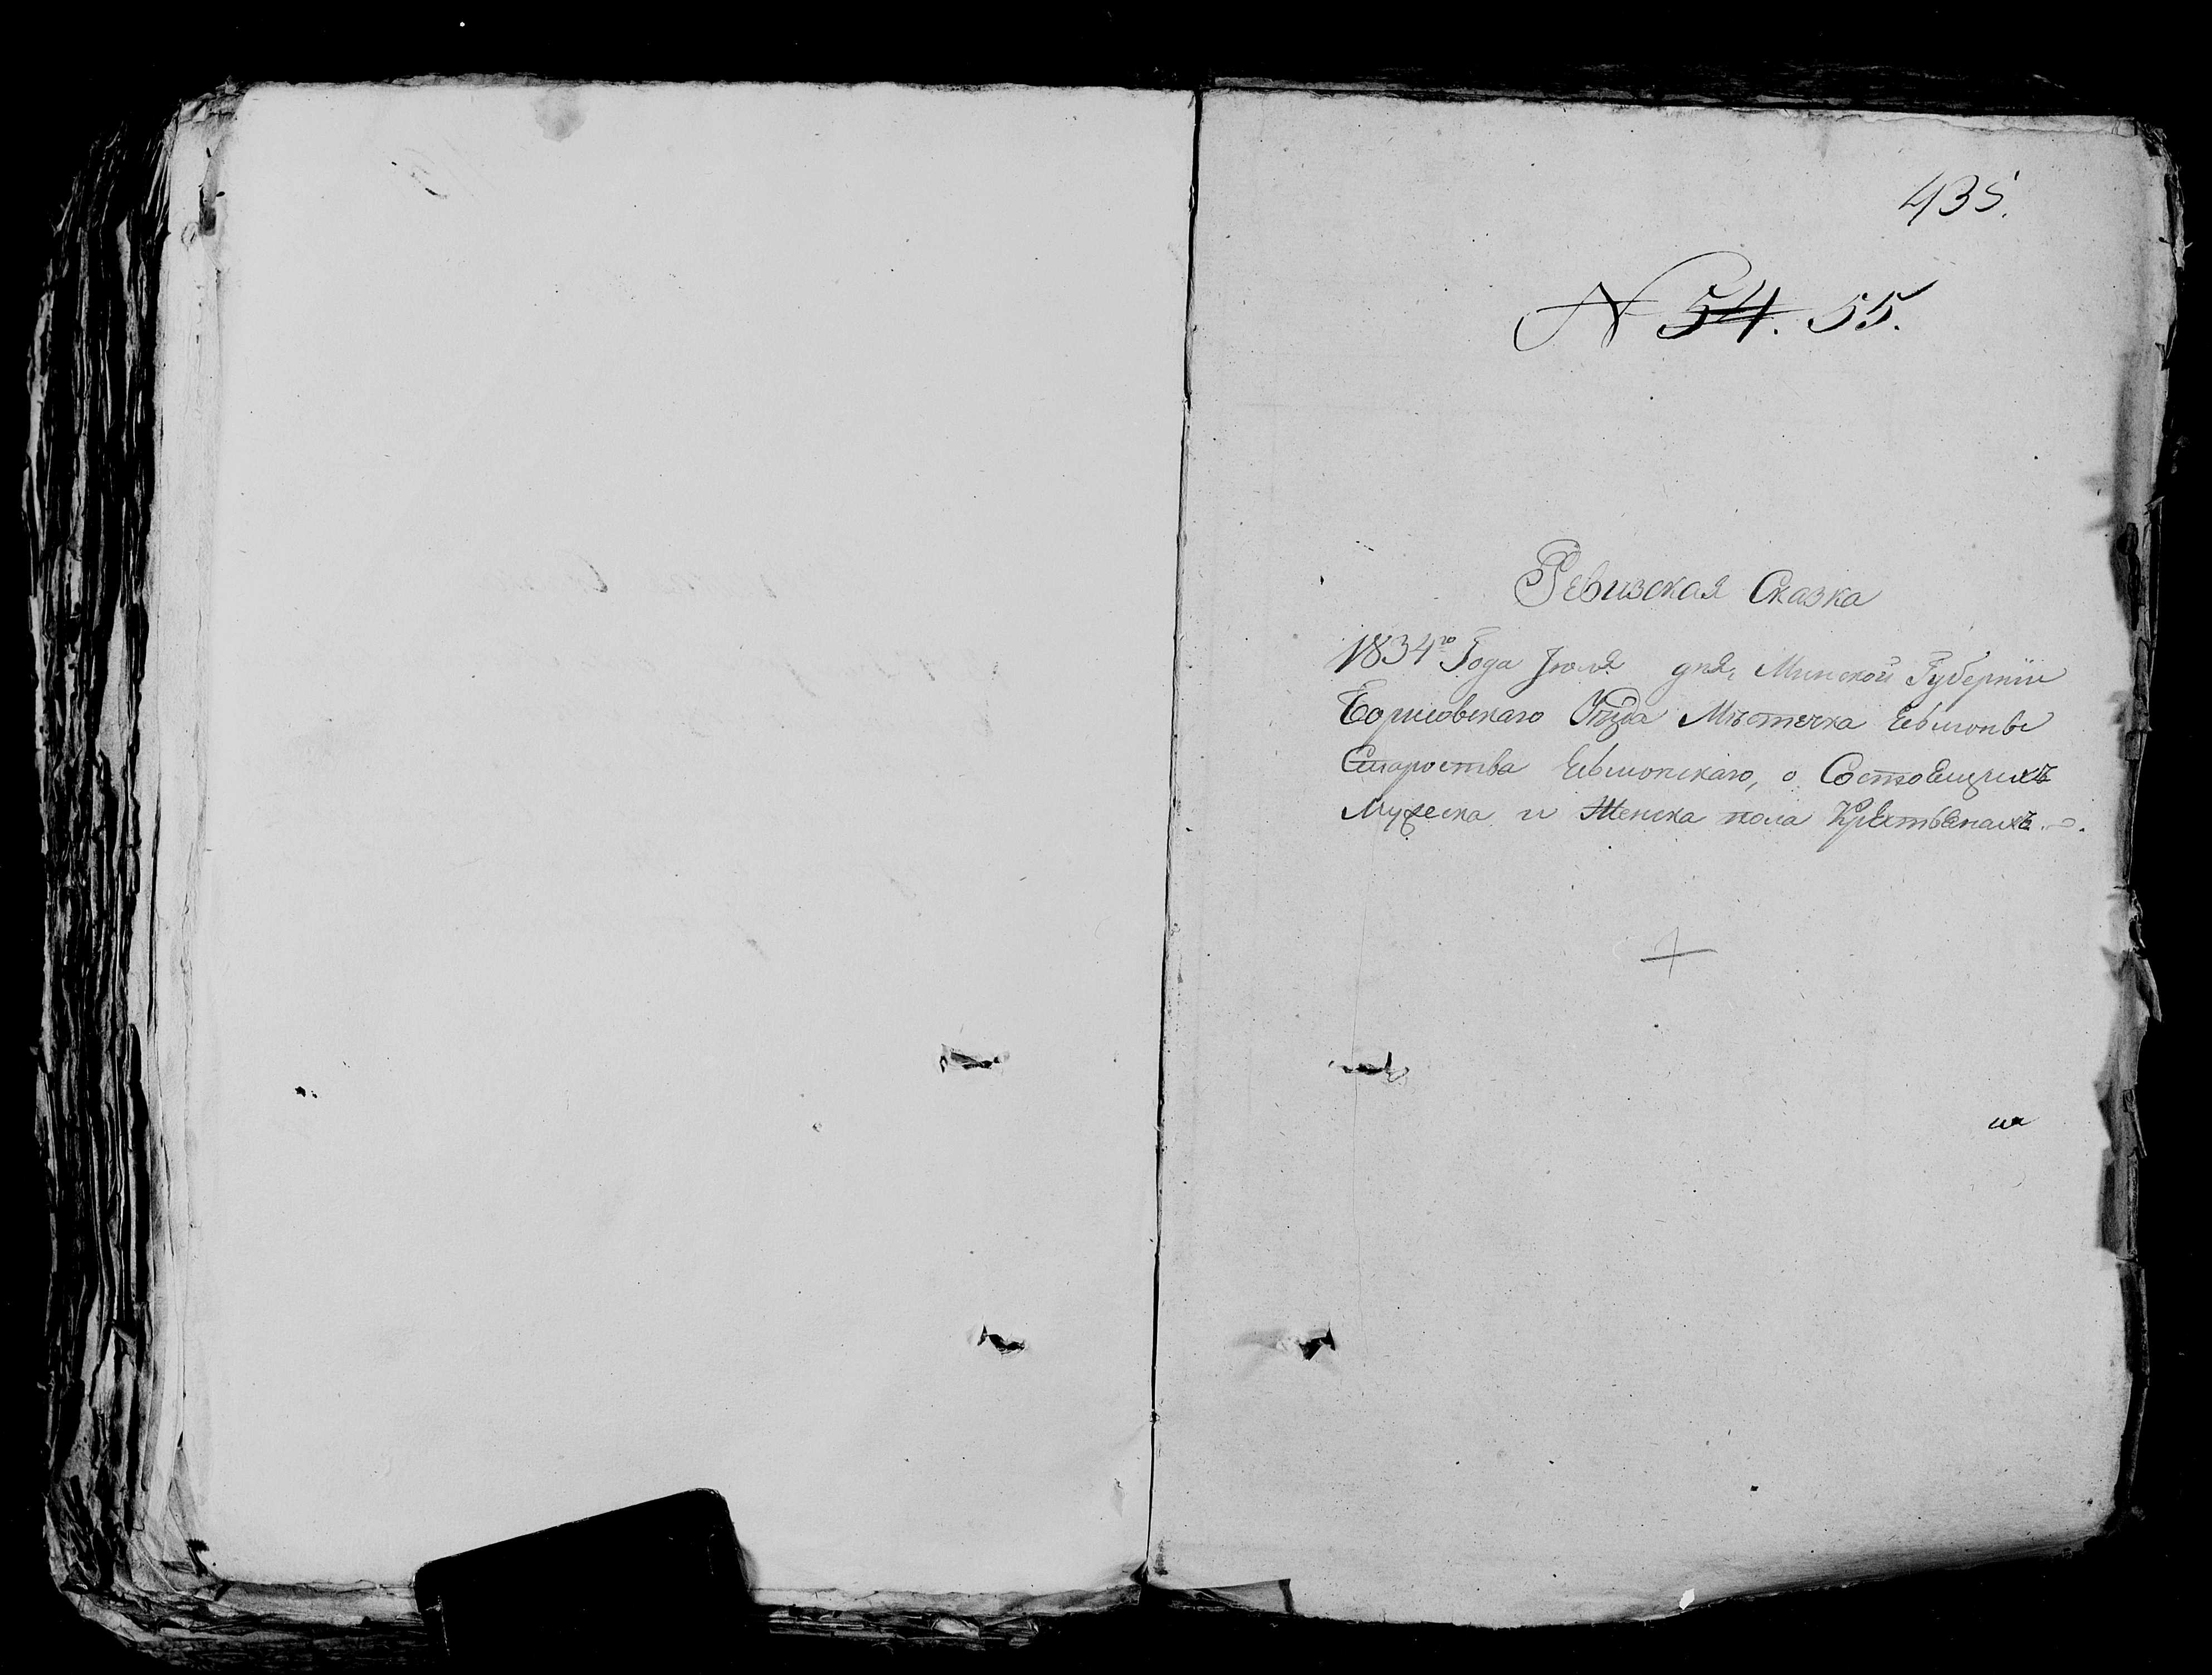 435.
N 54. 55.
Ревизская Сказка
1834го Года Июля дня, Минской Губерніи
Борисовскаго Уѣзда Мѣстечка
Староства о Состоещихъ
Мужеска и Женска пола Крестьенахъ